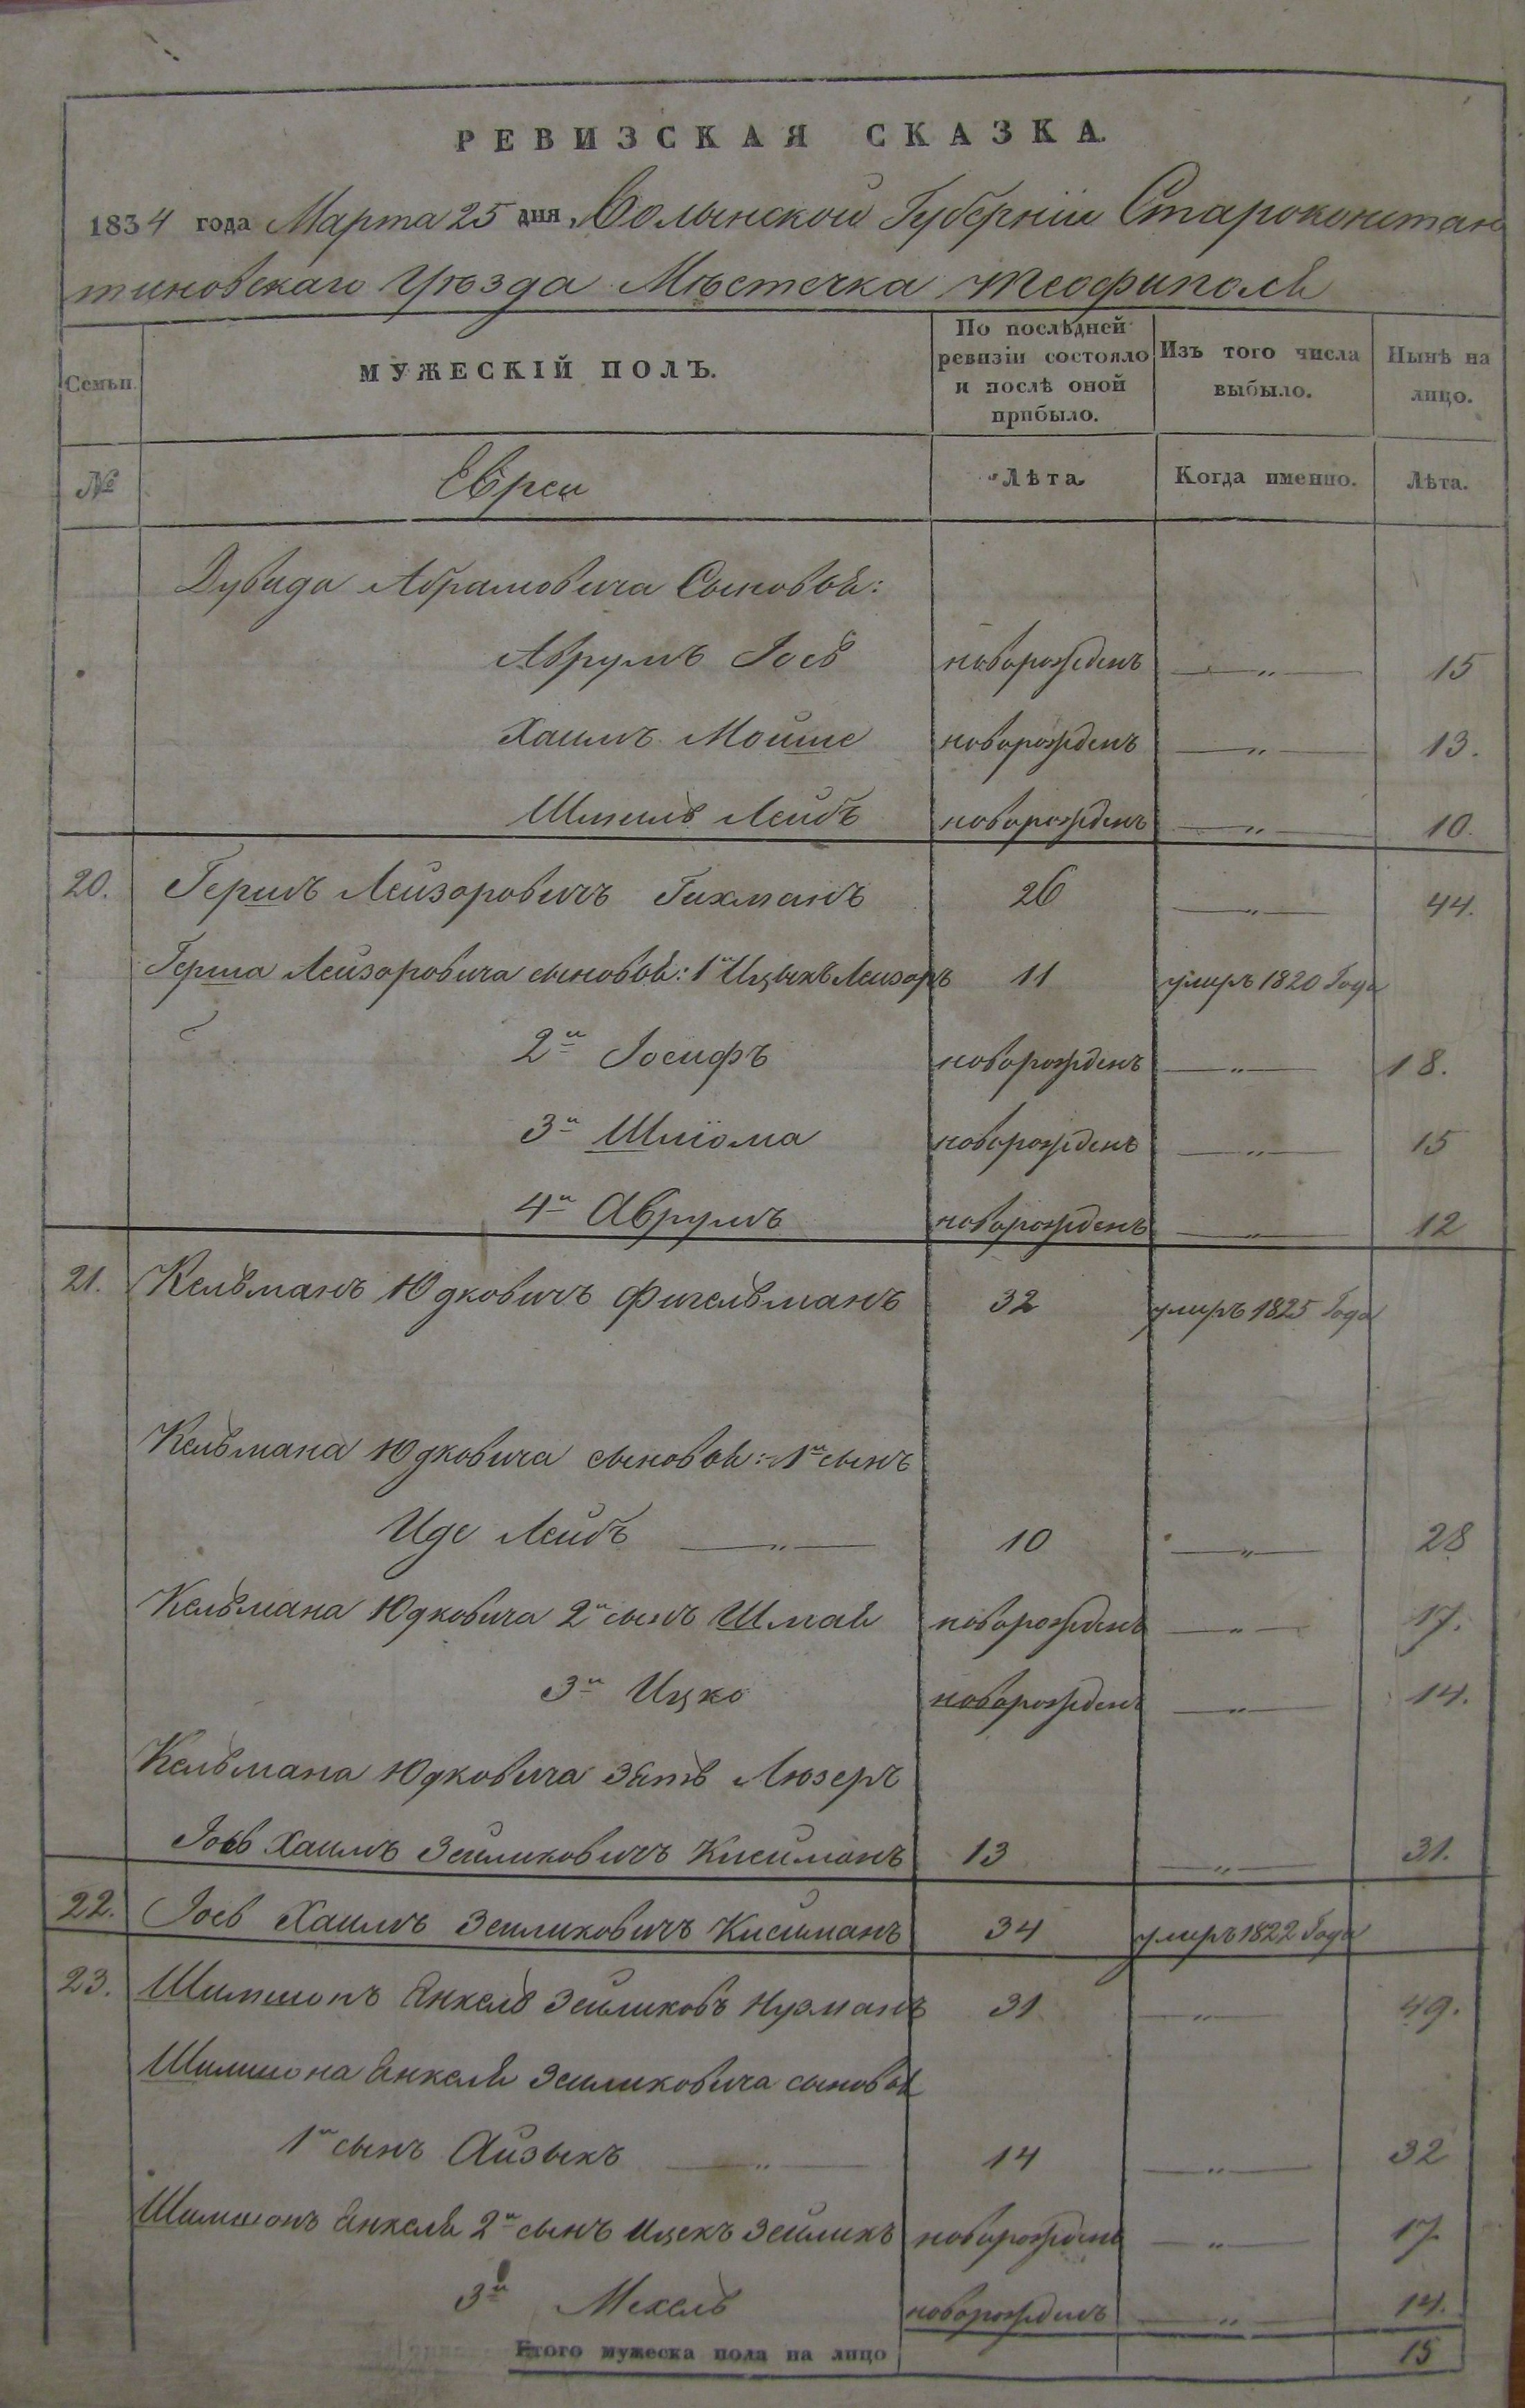 РЕВИЗСКАЯ СКАЗКА.
1834 года Марта 25 дня, Волынской Губерніи Староконстан
тиновскаго Уѣзда Мѣстечка Теофиполя
Семьи.
МУЖЕСКІЙ ПОЛЪ.
По послѣдней ревизіи состояло и послѣ оной прибыло.
Изъ того числа выбыло.
Нынѣ на лицо.
№
Евреи
Лѣта
Когда именно.
Лѣта.
Дувида Абрамовича Сыновья:
Аврумъ Іось новорожденъ —„— 15
Хаимъ Мойше новорожденъ —„— 13.
Шмиль Лейбъ новорожденъ —„— 10.
20. Гершъ Лейзоровичъ Гихманъ 26 —„— 44.
Герша Лейзоровича сыновья: 1й Ицыкъ Лейзоръ 11 умиръ 1820 Года
2й Іосифъ новорожденъ —„— 18.
3й Шліома новорожденъ —„— 15
4й Аврумъ новорожденъ —„— 12
21. Кельманъ Юдковичъ Фигельманъ 32 умиръ 1825 Года
Кельмана Юдковича сыновья: 1й сынъ
Иде Лейбъ —„— 10 —„— 28
Кельмана Юдковича 2й сынъ Шмая новорожденъ —„— 17.
3й Ицко новорожденъ —„— 14.
Кельмана Юдковича зять Люзеръ
Іось Хаимъ Зейликовичъ Кисиманъ 13 —„— 31.
22. Іось Хаимъ Зейликовичъ Кисиманъ 34 умиръ 1822 Года
23. Шимшонъ Енкель Зейликовъ Нузманъ 31 —„— 49.
Шимшона Енкеля Зейликовича сыновья
1й сынъ Айзыкъ —„— 14 —„— 32
Шимшонъ Енкеля 2й сынъ Ицекъ Зейликъ новорожденъ —„— 17
3й Мехель новорожденъ —„— 14.
Итого мужеска пола на лицо 15